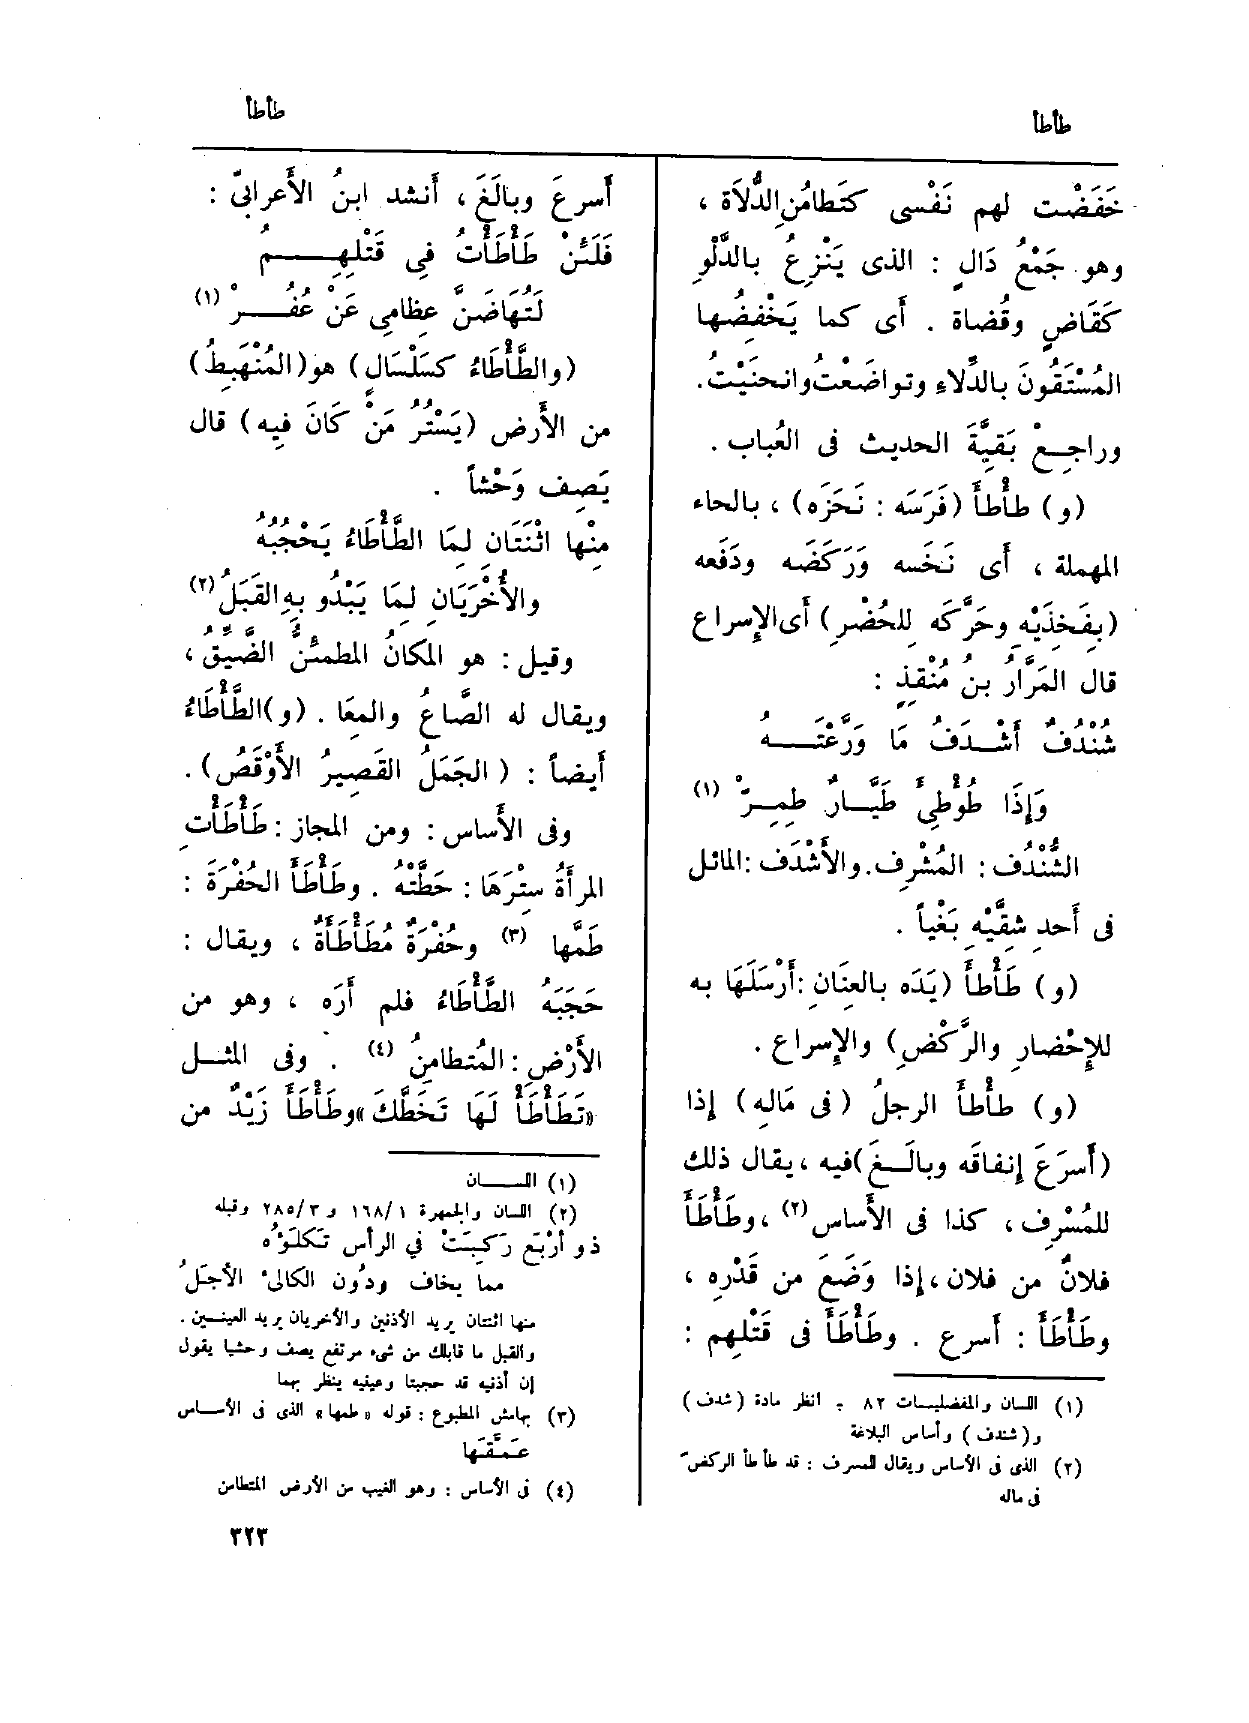 طأطأ
طأطأ
خَفَضْت لهم نَفْسى كتَطامُنِ الدُّلَاة ،
وهو جَمْعُ دَالٍ : الذى يَنْزِعُ بالدَّلْوِ
كَقَاضٍ وقُضاة . أى كما يَخْفِضُها
المُسْتَقُونَ بالدِّلاءِ وتواضَعْتُ وانحنَيْتُ .
وراجِعْ بَقِيَّةَ الحديث فى العُباب .
(و) طأْطأَ (فَرَسَه : نَحَزَه) ، بالحاء
المهملة ، أى نَخَسه وَرَكَضَه ودَفَعه
(بِفَخِذَيْهِ وحَرَّكَه لِلحُضْرِ) أى الإِسراع
قال المَرَّارُ بنُ مُنْقِذٍ :
شُنْدُفٌ أَشْدَفُ مَا وَرَّعْتَهُ
وَإِذَا طُوْطِئَ طَيَّارٌ طِمِرّْ (١)
الشُّنْدُف : المُشْرِف. والأَشْدَف : المائل
فى أَحدِ شِقَّيْهِ بَغْياً .
(و) طَأْطأَ (يَدَه بالعِنَانِ : أَرْسَلَهَا به
للإِحْضارِ والرَّكْضِ) والإِسراع .
(و) طأْطأَ الرجلُ (فى مَالِه) إذا
(أَسرَعَ إنفاقَه وبالَغَ) فيه ، يقال ذلك
للمُسْرِف ، كذا فى الأَساس (٢) ، وطَأْطَأَ
فلانٌ من فلان ، إذا وَضَعَ من قَدْرِه ،
وطَأْطَأَ : أَسرع . وطَأْطَأَ فى قَتْلِهم :
(١) اللسان والمفضليات ٨٢ . انظر مادة (شدف)
و(شندف) وأساس البلاغة
(٢) الذى فى الأساس ويقال للمسرف : قد طأطأ الركض
فى ماله
أَسرعَ وبالَغَ ، أَنشد ابنُ الأَعرابىّ :
فَلَئِنْ طَأْطَأْتُ فِى قَتْلِهِمُ
لَتُهَاضَنَّ عِظَامِى عَنْ عُفُرْ (١)
(والطَّأْطَاءُ كسَلْسَال) هو (المُنْهَبِطُ)
من الأَرض (يَسْتُرُ مَنْ كَانَ فِيه) قال
يَصِف وَحْشاً .
مِنْها اثْنَتَانِ لِمَا الطَّأْطَاءُ يَحْجُبُهُ
والأُخْرَيَانِ لِمَا يَبْدُو بِهِ القَبَلُ (٢)
وقيل : هو المكانُ المطمئنُّ الضَّيِّقُ ،
ويقال له الصَّاعُ والمِعَا . (و) الطَّأْطَاءُ
أَيضاً : (الجَمَلُ القَصِيرُ الأَوْقَصُ) .
وفى الأَساس : ومن المجاز : طَأْطَأَتِ
المرأَةُ سِتْرَهَا : حَطَّتْهُ . وطَأْطَأَ الحُفْرَةَ :
طَمَّها (٣) وحُفْرَةٌ مُطَأْطَأَةٌ ، ويقال :
حَجَبَهُ الطَّأْطَاءُ فلم أَرَه ، وهو من
الأَرْضِ : المُتطامِنُ (٤) . وفى المثل
«تَطَأْطَأْ لَهَا تَخَطَّكَ» وطَأْطَأَ زَيْدٌ من
(١) اللسان
(٢) اللسان والجمهرة ١٦٨/١ و ٢٨٥/٣ وقبله
ذو أرْبَعٍ رَكِبَتْ في الرأس تَكلَؤه
مما يخاف ودُون الكالئ الأجَلُ
منها اثنتان يريد الأذنين والأخريان يريد العينين .
والقبل ما قابلك من شىء مرتفع يصف وحشيا يقول
إن أذنيه قد حجبتا وعينيه ينظر بهما
(٣) بهامش المطبوع : قوله «طمها» الذى فى الأساس
عَمَّقَها
(٤) فى الأساس : وهو الغيب من الأرض المتطامن
٣٢٣